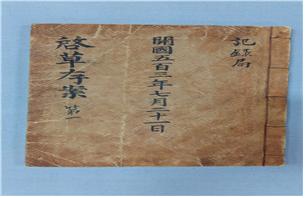 記錄局
開國五百三年七月二十一日
啓草存案 第一